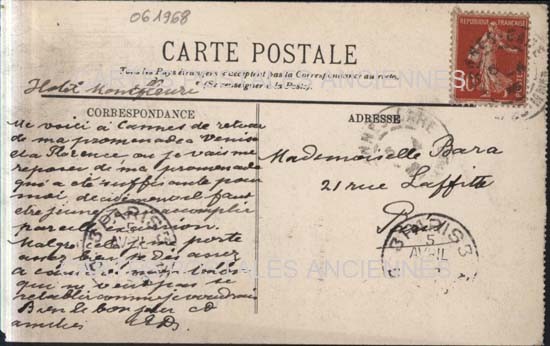 061968
CARTE POSTALE
Tous les Pays étrangers n'acceptent pas la Correspondance au recto.
(Se renseigner à la Poste).
REPUBLIQUE FRANÇAISE
Hotel Montfleuri
CORRESPONDANCE
ADRESSE
Me voici à Cannes de retour
de ma promenade à Venise
et à Florence ou je vais me
reposer de ma promenade
qui a été suffisante pour
moi decidement il faut
être jeune accomplir
pareille excursion.
Malgré cela je me porte
assez bien je dis assez
à cause de mon
qui ne veut pas se
retablir comme je voudrais
Bien le bonjour et
amitiés
Mademoiselle Bara
21 rue Laffitte
Paris
PARIS
5
AVRIL
PARIS 3
5
AVRIL
CARTES POSTALES ANCIENNES